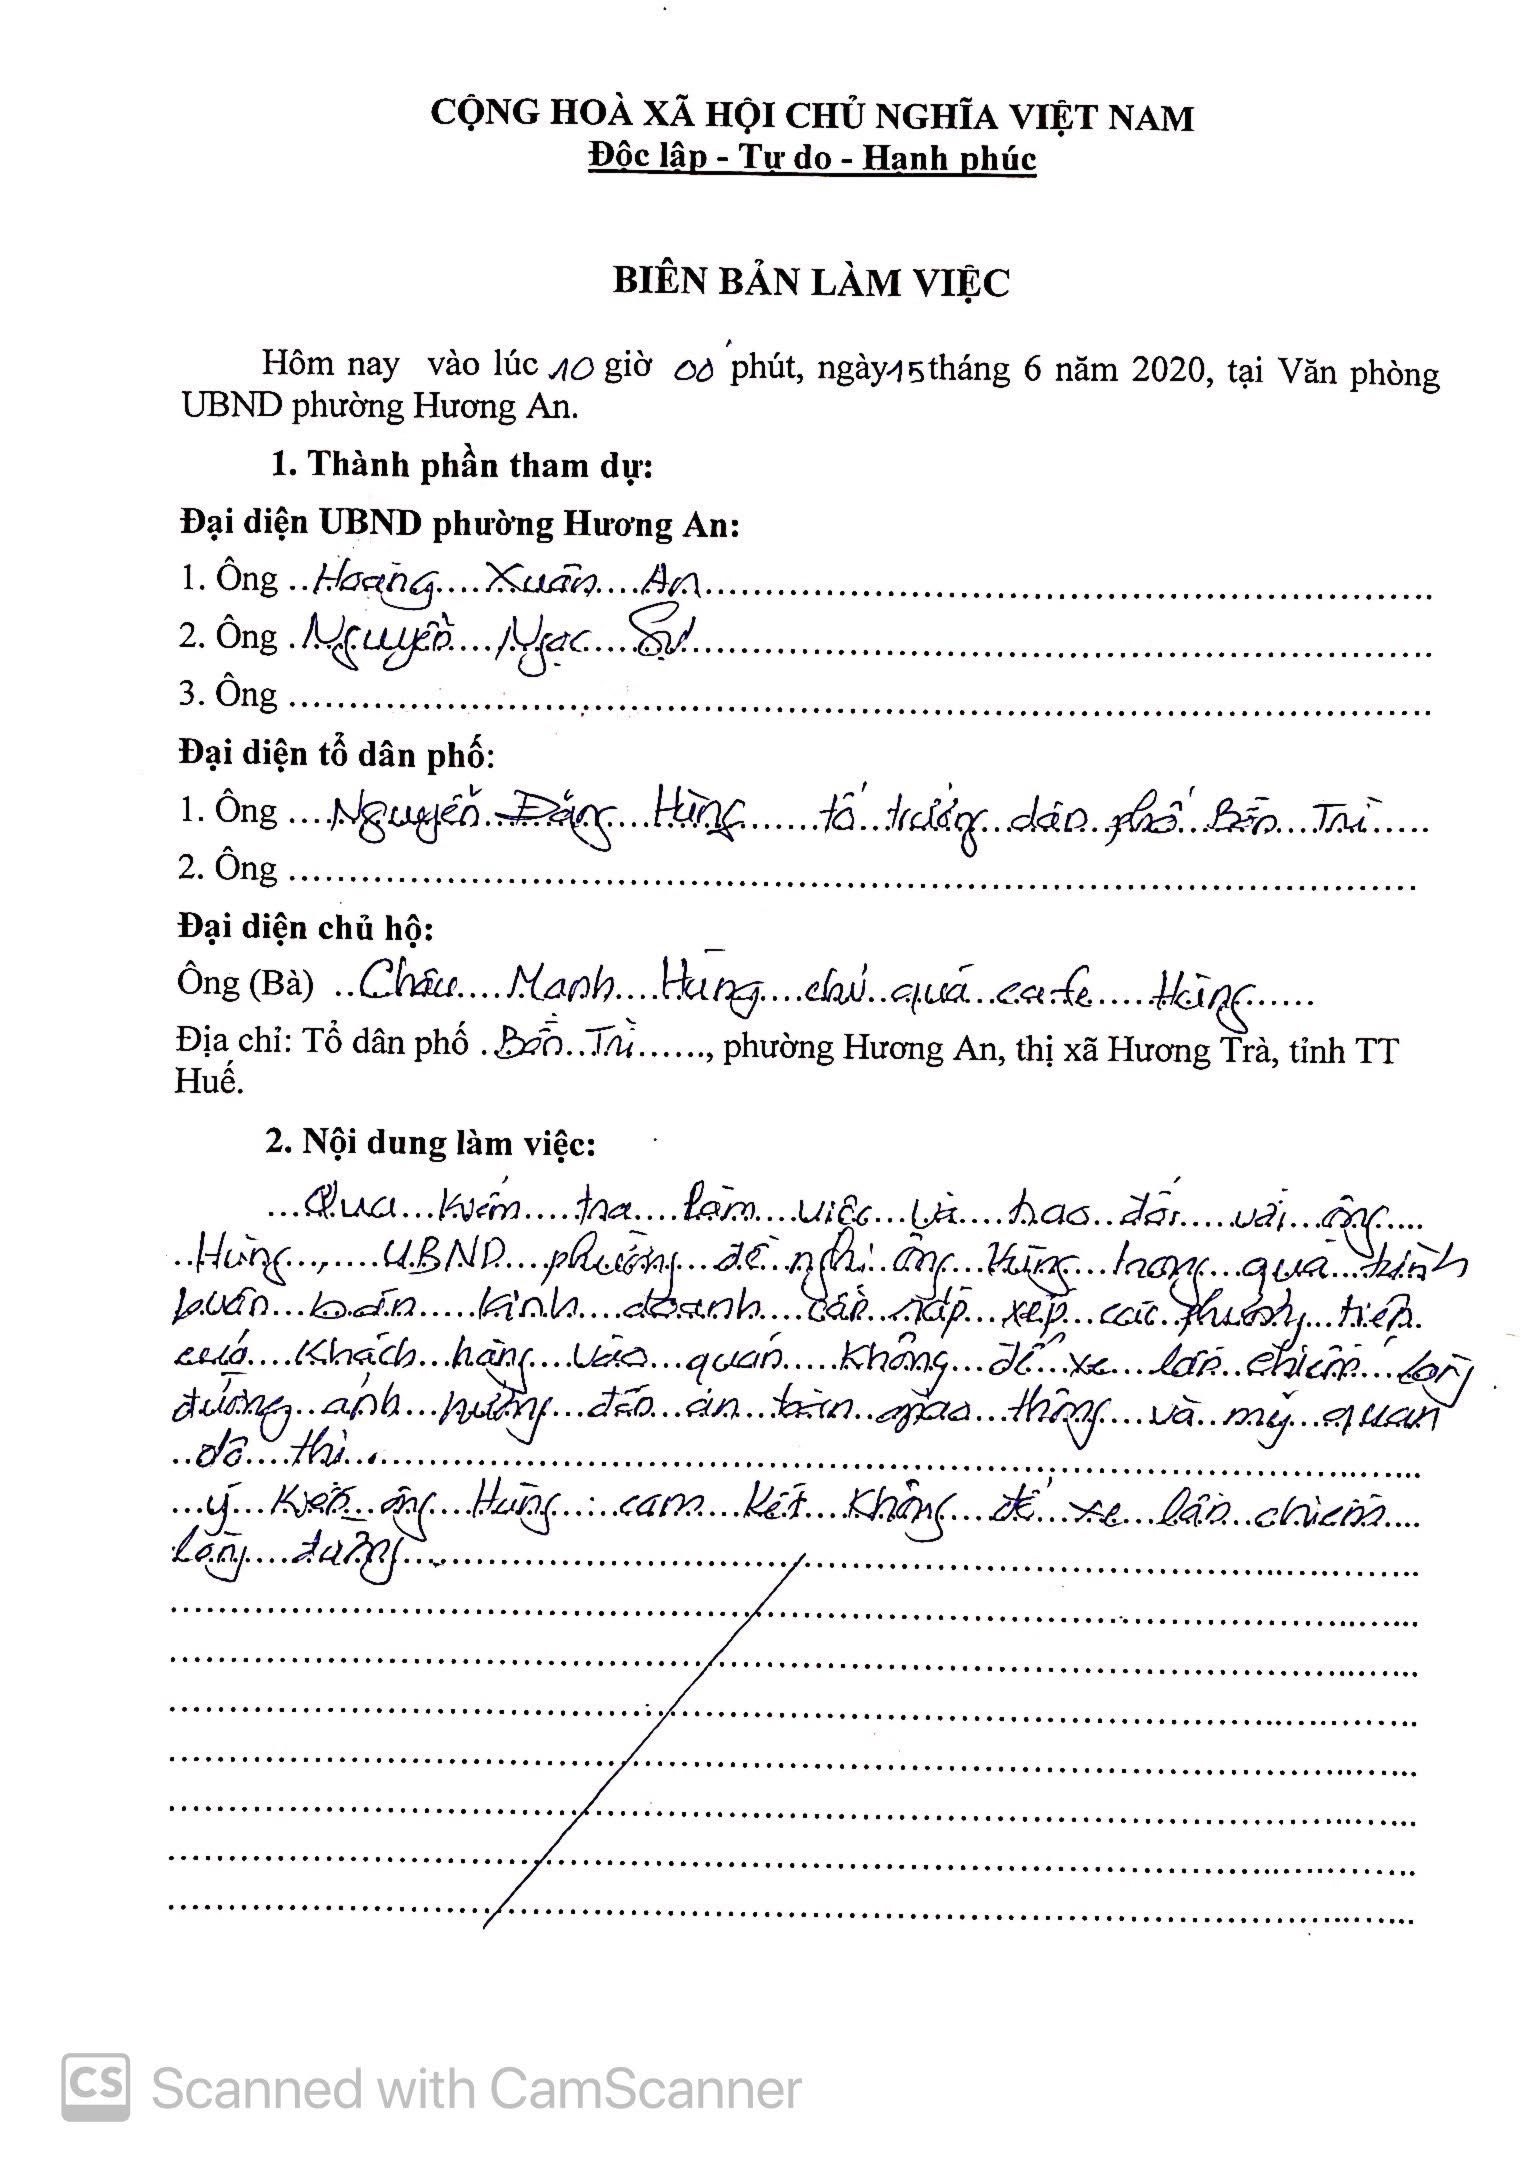 CỘNG HOÀ XÃ HỘI CHỦ NGHĨA VIỆT NAM
Độc lập - Tự do - Hạnh phúc
BIÊN BẢN LÀM VIỆC
Hôm nay vào lúc 10 giờ 00 phút, ngày 15 tháng 6 năm 2020, tại Văn phòng
UBND phường Hương An.
1. Thành phần tham dự:
Đại diện UBND phường Hương An:
1. Ông Hoàng Xuân An
2. Ông Nguyễn Ngọc Sự
3. Ông
Đại diện tổ dân phố:
1. Ông Nguyễn Đăng Hùng tổ trưởng dân phố Bồn Trì
2. Ông
Đại diện chủ hộ:
Ông (Bà) Châu Mạnh Hùng chủ quá cafe Hùng
Địa chỉ: Tổ dân phố Bồn Trì, phường Hương An, thị xã Hương Trà, tỉnh TT
Huế.
2. Nội dung làm việc:
Qua kiểm tra làm việc và trao đổi với ông
Hùng, UBND phường đề nghị ông Hùng trong quá trình
buôn bán kinh doanh cần sắp xếp các phương tiện
của khách hàng vào quán không để xe lấn chiếm lòng
đường ảnh hưởng đến an toàn giao thông và mỹ quan
đô thị.
ý kiến ông Hùng: cam kết không để xe lấn chiếm
lòng đường.
CS Scanned with CamScanner